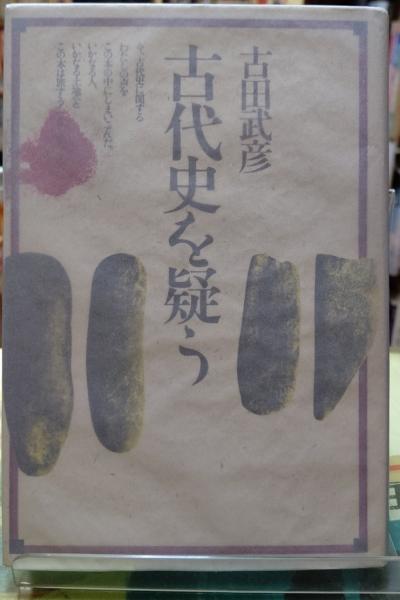 古田武彦
古代史を疑う
今、古代史に関する
わたしの声を
この本の中にしまいこんだ。
いかなる人、
いかなる土地を
この本は旅する